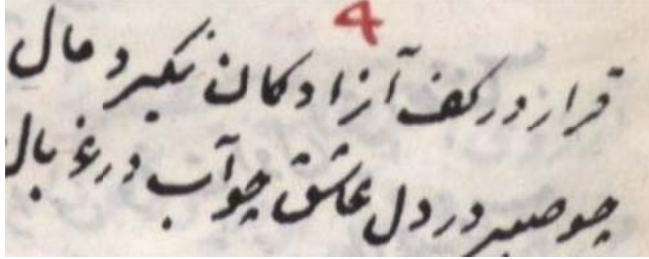 ۴
قرار در کف آزادگان نگیرد مال
چو صبر در دل عاشق چو آب در غربال